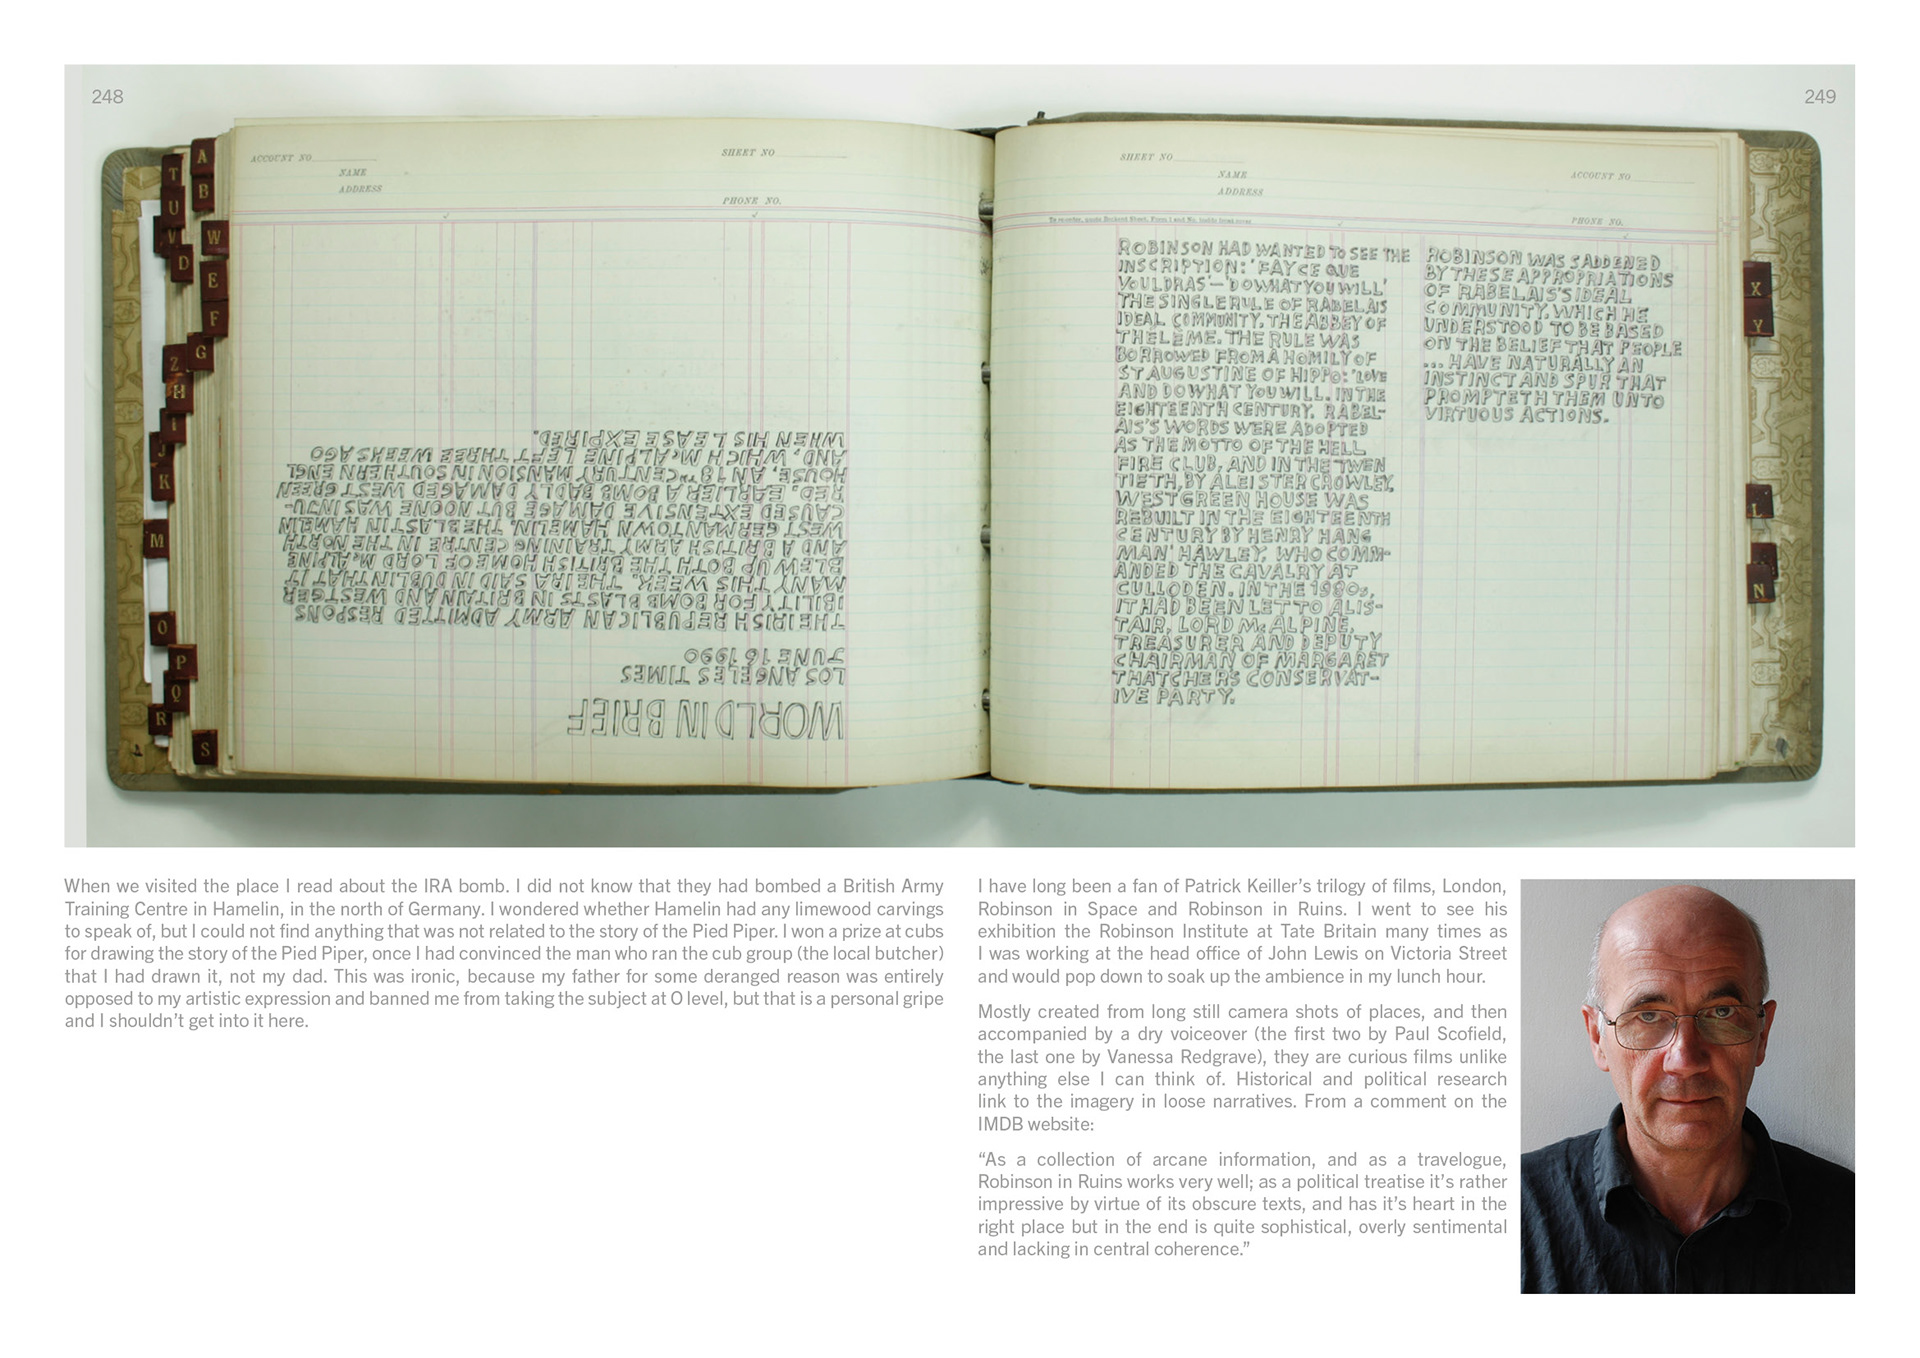 248
249
ACCOUNT NO
SHEET NO
NAME
ADDRESS
PHONE NO.
A
T
B
U
V
W
D
E
F
G
Z
H
I
J
K
M
O
P
Q
R
S
WORLD IN BRIEF
LOS ANGELES TIMES
JUNE 16 1990
THE IRISH REPUBLICAN ARMY ADMITTED RESPONS
IBILITY FOR BOMB BLASTS IN BRITAIN AND WESTGER
MANY THIS WEEK. THE IRA SAID IN DUBLIN THAT IT
BLEW UP BOTH THE BRITISH HOME OF LORD McALPINE
AND A BRITISH ARMY TRAINING CENTRE IN THE NORTH
WEST GERMAN TOWN HAMELIN. THE BLAST IN HAMELIN
CAUSED EXTENSIVE DAMAGE BUT NOONE WAS INJU-
RED. EARLIER A BOMB BADLY DAMAGED WEST GREEN
HOUSE, AN 18TH CENTURY MANSION IN SOUTHERN ENGL
AND, WHICH McALPINE LEFT THREE WEEKS AGO
WHEN HIS LEASE EXPIRED.
SHEET NO
ACCOUNT NO
NAME
ADDRESS
PHONE NO.
ROBINSON HAD WANTED TO SEE THE
INSCRIPTION: 'FAY CE QUE
VOULDRAS – 'DO WHAT YOU WILL'
THE SINGLE RULE OF RABELAIS
IDEAL COMMUNITY, THE ABBEY OF
THELEME. THE RULE WAS
BORROWED FROM A HOMILY OF
ST AUGUSTINE OF HIPPO: 'LOVE
AND DO WHAT YOU WILL. IN THE
EIGHTEENTH CENTURY, RABEL-
AIS'S WORDS WERE ADOPTED
AS THE MOTTO OF THE HELL
FIRE CLUB, AND IN THE TWEN
TIETH, BY ALEISTER CROWLEY,
WESTGREEN HOUSE WAS
REBUILT IN THE EIGHTEENTH
CENTURY BY HENRY HANG
MAN' HAWLEY, WHO COMM-
ANDED THE CAVALRY AT
CULLODEN. IN THE 1980s,
IT HAD BEEN LET TO ALIS-
TAIR, LORD McALPINE,
TREASURER AND DEPUTY
CHAIRMAN OF MARGARET
THATCHER'S CONSERVAT-
IVE PARTY.
ROBINSON WAS SADDENED
BY THESE APPROPRIATIONS
OF RABELAIS'S IDEAL
COMMUNITY, WHICH HE
UNDERSTOOD TO BE BASED
ON THE BELIEF THAT PEOPLE
... HAVE NATURALLY AN
INSTINCT AND SPUR THAT
PROMPTETH THEM UNTO
VIRTUOUS ACTIONS.
X
Y
L
N
When we visited the place I read about the IRA bomb. I did not know that they had bombed a British Army
Training Centre in Hamelin, in the north of Germany. I wondered whether Hamelin had any limewood carvings
to speak of, but I could not find anything that was not related to the story of the Pied Piper. I won a prize at cubs
for drawing the story of the Pied Piper, once I had convinced the man who ran the cub group (the local butcher)
that I had drawn it, not my dad. This was ironic, because my father for some deranged reason was entirely
opposed to my artistic expression and banned me from taking the subject at O level, but that is a personal gripe
and I shouldn't get into it here.
I have long been a fan of Patrick Keiller's trilogy of films, London,
Robinson in Space and Robinson in Ruins. I went to see his
exhibition the Robinson Institute at Tate Britain many times as
I was working at the head office of John Lewis on Victoria Street
and would pop down to soak up the ambience in my lunch hour.
Mostly created from long still camera shots of places, and then
accompanied by a dry voiceover (the first two by Paul Scofield,
the last one by Vanessa Redgrave), they are curious films unlike
anything else I can think of. Historical and political research
link to the imagery in loose narratives. From a comment on the
IMDB website:
“As a collection of arcane information, and as a travelogue,
Robinson in Ruins works very well; as a political treatise it's rather
impressive by virtue of its obscure texts, and has it's heart in the
right place but in the end is quite sophistical, overly sentimental
and lacking in central coherence.”